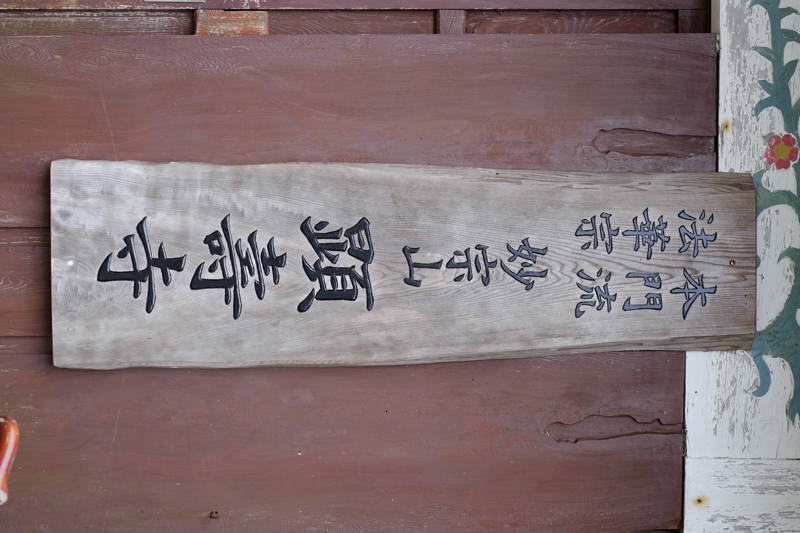 本門流
法華宗
妙宗山
顕壽寺